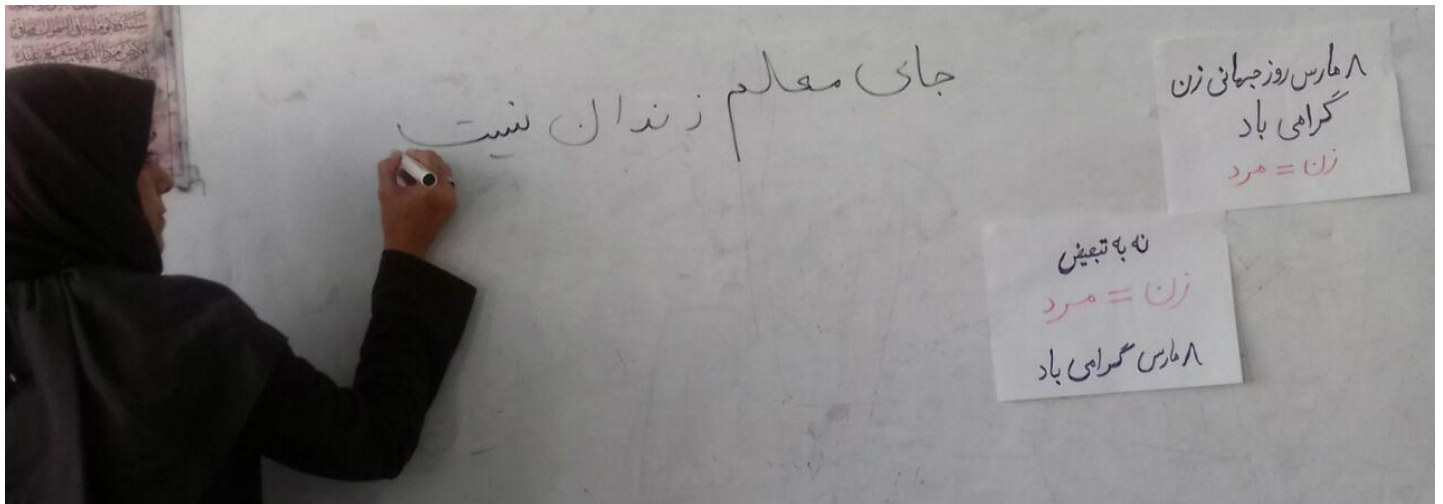 جای معلم زندان نیست
۸ مارس روز جهانی زن
گرامی باد
زن = مرد
نه به تبعیض
زن = مرد
۸ مارس گرامی باد